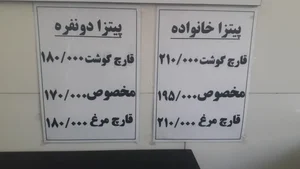 پیتزا خانواده
قارچ گوشت ۲۱۰/۰۰۰
مخصوص ۱۹۵/۰۰۰
قارچ مرغ ۲۱۰/۰۰۰
پیتزا دونفره
قارچ گوشت ۱۸۰/۰۰۰
مخصوص ۱۷۰/۰۰۰
قارچ مرغ ۱۸۰/۰۰۰